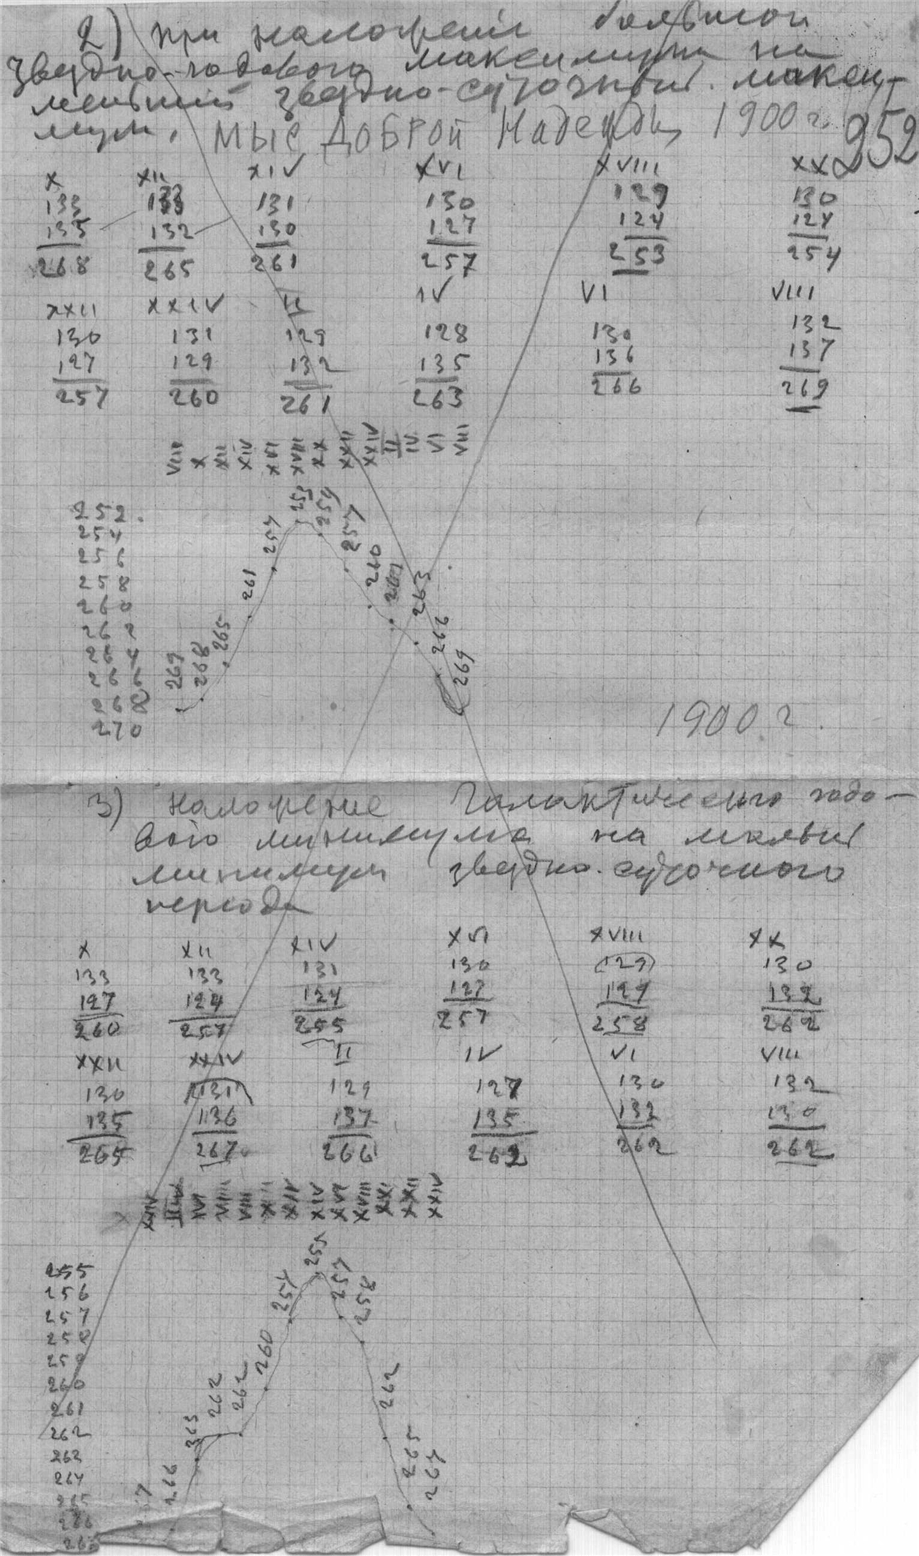 2) при наложении большой
звездно-годового максимума на
меньший звездно-суточный макси-
мум. Мыс Доброй Надежды 1900 г. 252
X XII XIV XVI XVIII XX
133 133 131 130 129 130
135 132 130 127 124 124
268 265 261 257 253 254
XXII XXIV II IV VI VIII
130 131 129 128 130 132
127 129 132 135 136 137
257 260 261 263 266 269
VIII X XII XIV XVI XVIII XX XXII XXIV II IV VI VIII
252
254
256
258
260
262
264
266
268
270
269 268 265 261 257 253 254 257 260 261 263 266 269
1900 г.
3) наложение Галактического годо-
вого минимума на малый
минимум звездно-суточного
периода
X XII XIV XVI XVIII XX
133 133 131 130 (129) 130
127 124 124 127 129 132
260 257 255 257 258 262
XXII XXIV II IV VI VIII
130 (131) 129 127 130 132
135 136 137 135 132 130
265 267 266 262 262 262
255
256
257
258
259
260
261
262
263
264
265
266
266 262 262 260 257 255 257 258 262 265 267